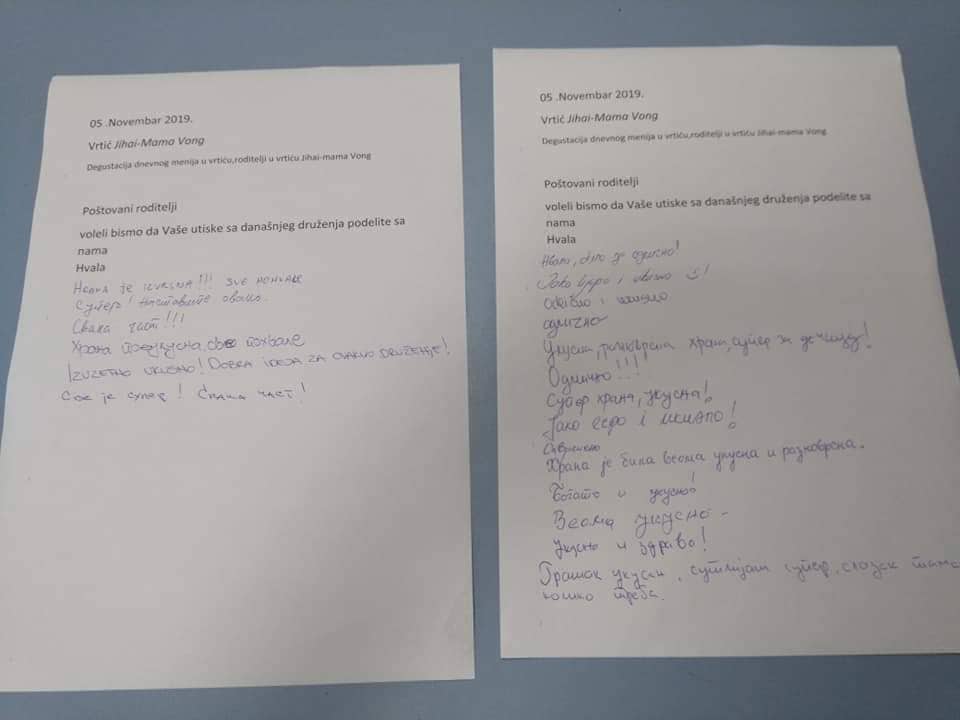 05 .Novembar 2019.
Vrtić Jihai-Mama Vong
Degustacija dnevnog menija u vrtiću,roditelji u vrtiću Jihai-mama Vong
Poštovani roditelji
voleli bismo da Vaše utiske sa današnjeg druženja podelite sa
nama
Hvala
Hrana je izvrsna!!! Sve pohvale
Супер! Наставите овако.
Свака част!!!
Храна преукусна, све похвале
IZUZETNO UKUSNO! DOBRA IDEJA ZA OVAKVO DRUŽENJE!
Све је супер! Свака част!
05 .Novembar 2019.
Vrtić Jihai-Mama Vong
Degustacija dnevnog menija u vrtiću,roditelji u vrtiću Jihai-mama Vong
Poštovani roditelji
voleli bismo da Vaše utiske sa današnjeg druženja podelite sa
nama
Hvala
Hvala, bilo je odlično!
Jako lepo i ukusno !
Odlično i ukusno
одлично
Укусна, разноврсна храна, супер за дечицу!
Одлично!!!
Супер храна, укусна!
Јако
Савршено
Храна је била веома укусна и разноврсна.
Богато и укусно!
Веома укусно
Укусно и здраво!
Грашак укусан, сутлијаш супер, сладак таман
колико треба.